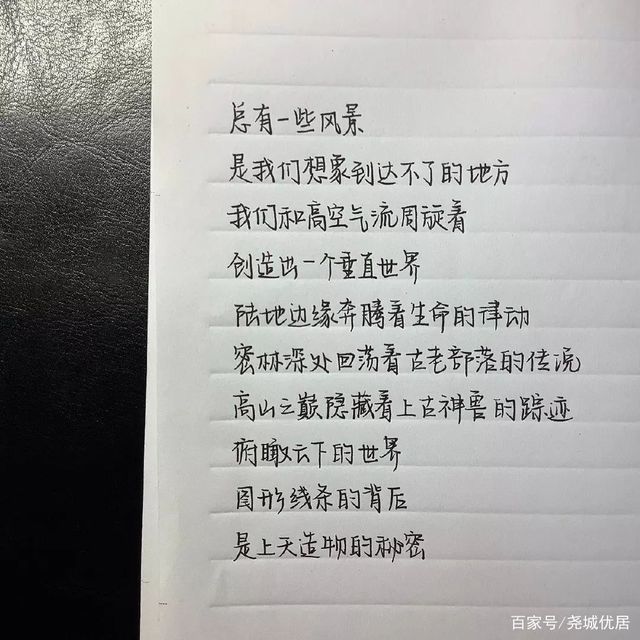 总有一些风景
是我们想象到达不了的地方
我们和高空气流周旋着
创造出一个垂直世界
陆地边缘奔腾着生命的律动
密林深处回荡着古老部落的传说
高山之巅隐藏着上古神兽的踪迹
俯瞰云下的世界
图形线条的背后
是上天造物的秘密
百家号/尧城优居